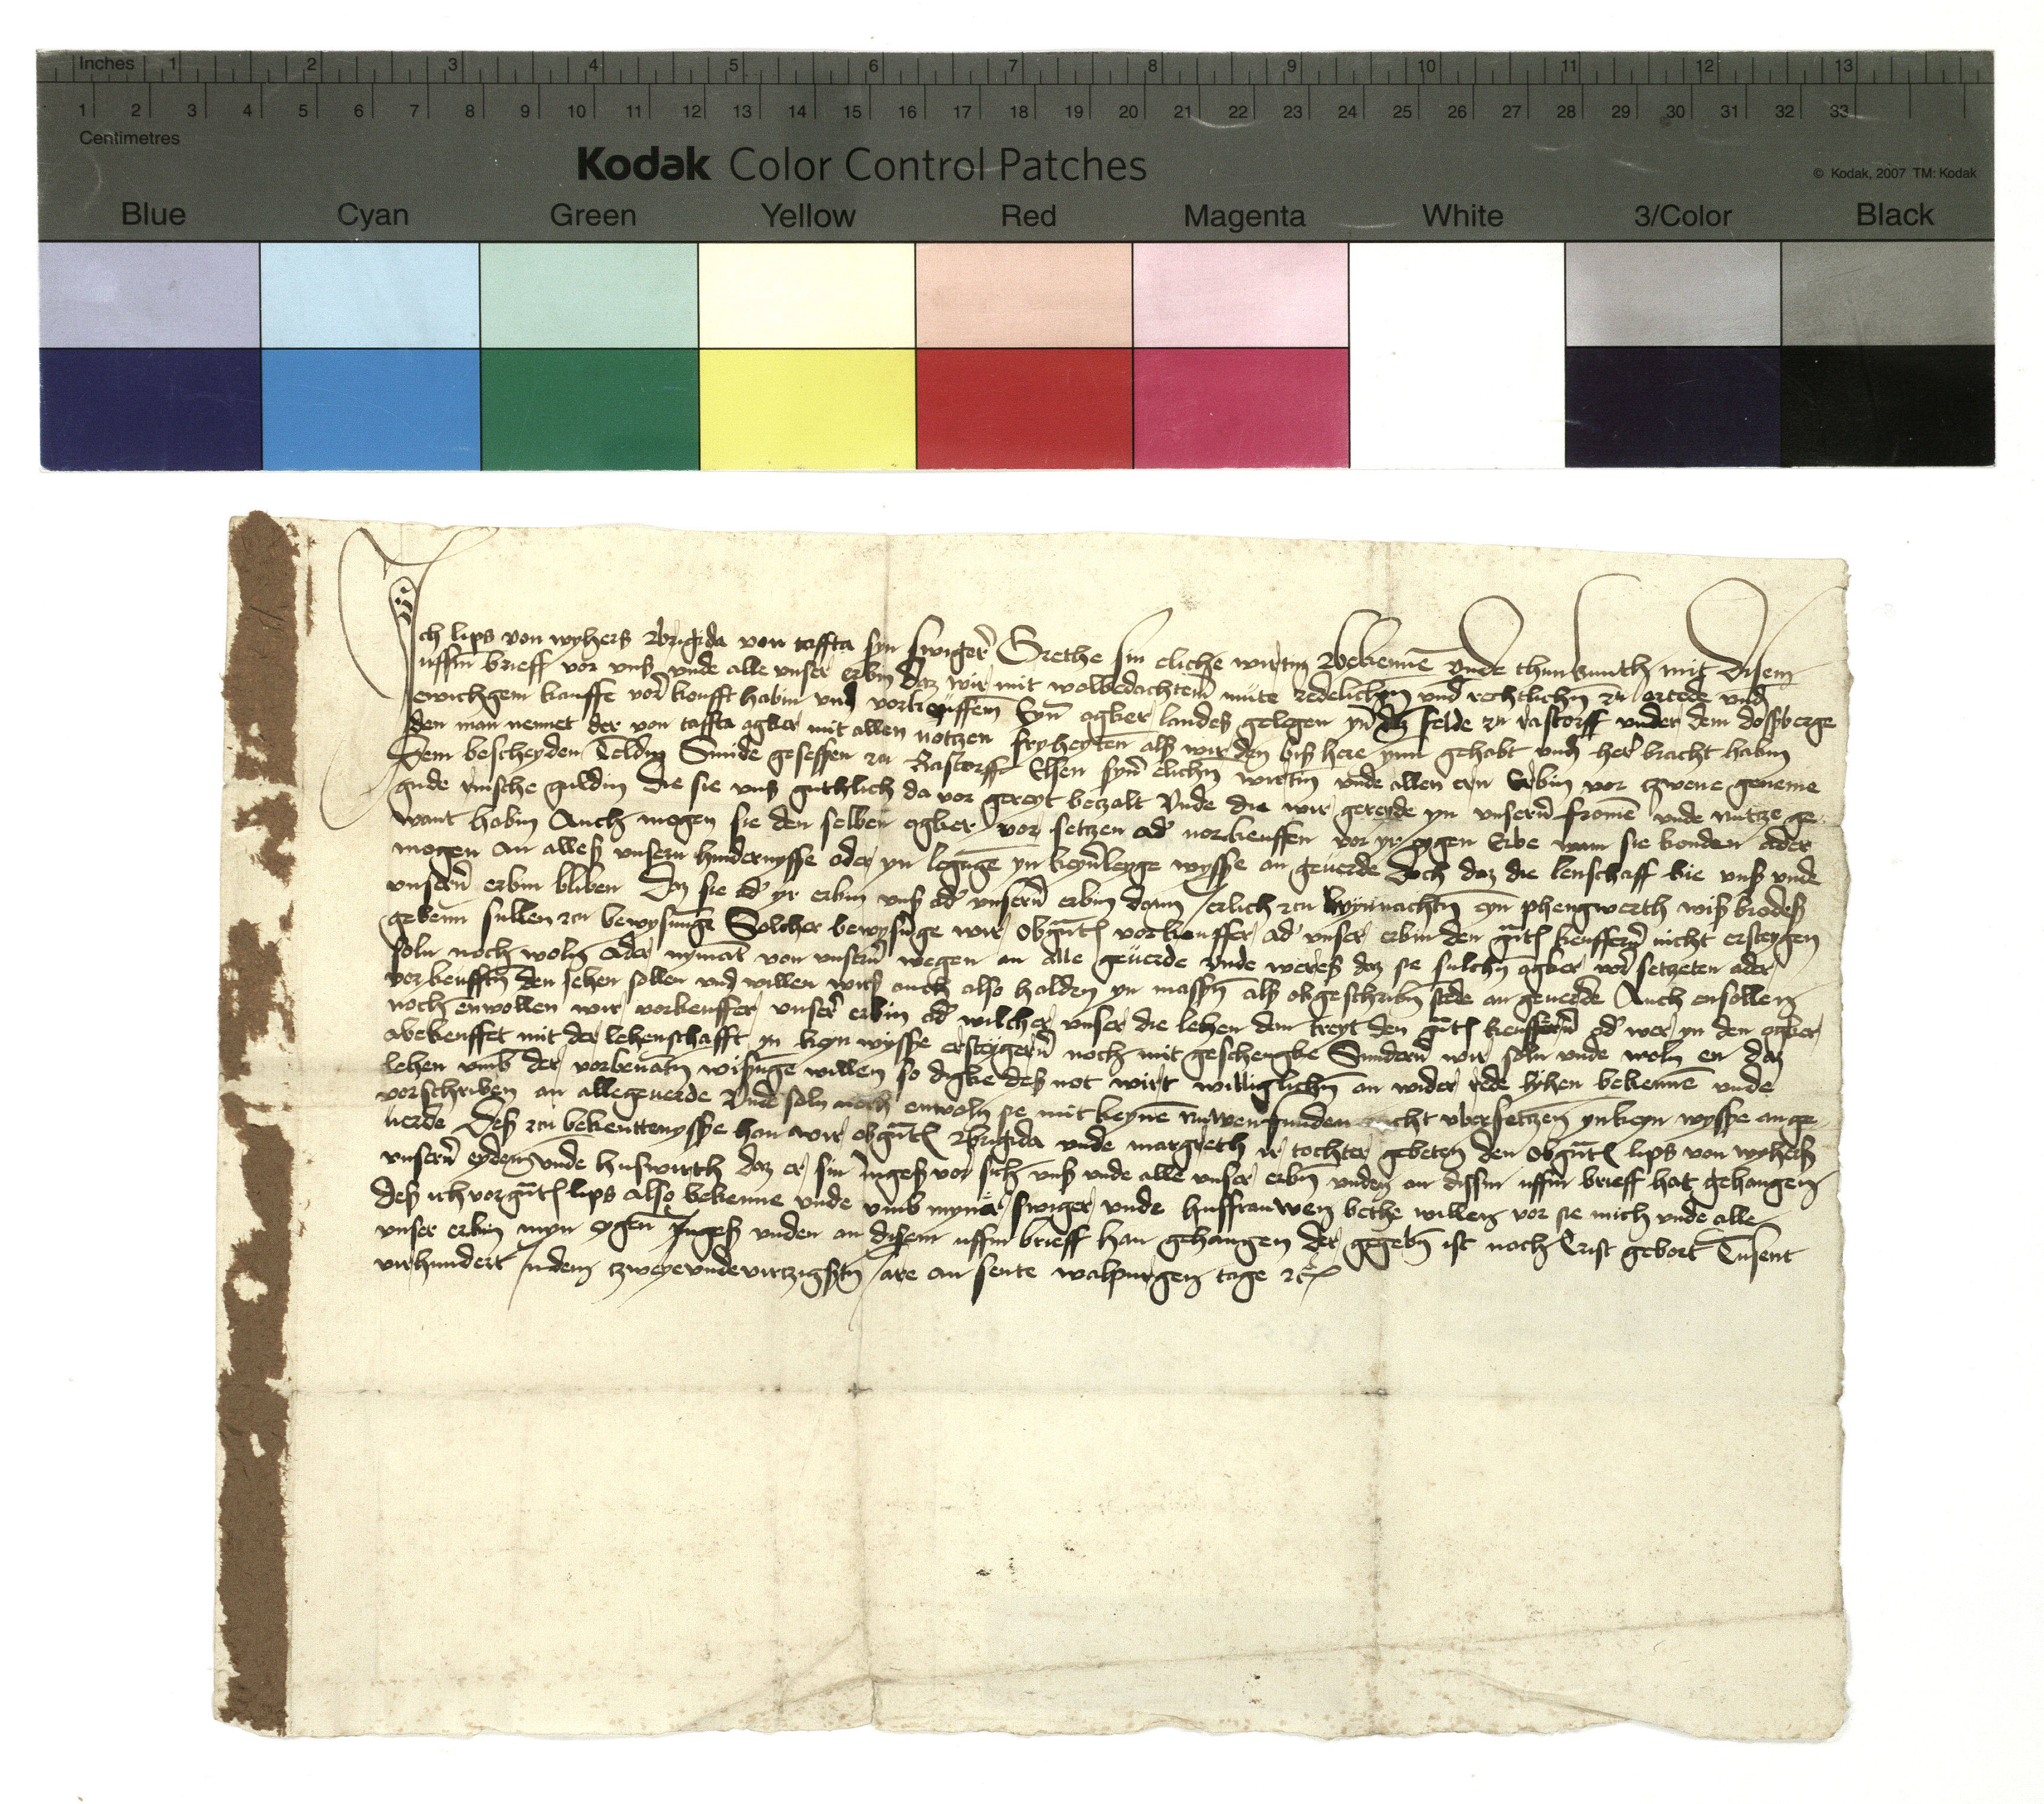 Inches 1 2 3 4 5 6 7 8 9 10 11 12 13
1 2 3 4 5 6 7 8 9 10 11 12 13 14 15 16 17 18 19 20 21 22 23 24 25 26 27 28 29 30 31 32 33
Centimetres
Kodak Color Control Patches
© Kodak, 2007 TM: Kodak
Blue Cyan Green Yellow Red Magenta White 3/Color Black
Ich lips von wyhers Brigida von taffta syn swiger̄ Grethe sin eliche wirtin Bekennē vnde thun kunth mit disem
uffin brieff vor vns vnde alle vnser erbin daz wir mit wolbedachtem̄ mute redelichen vnd rechtlichn̄ zu ortede vnd
ewichgem kauffe vor koufft habin vnd vorkeuffem Eyn̄ agker landes gelegen yn̄ dez felde zu rastorff vnder dem dossberge
den man nennet der von taffta agker mit allen notzen fryheyten als wir den bis here ynn gehabt vnd her bracht habin
Dem bescheyden Smide gesessen zu Rastorff Elsen syn̄ elichn̄ wirtin vnde allen ern Erbin vor tzwene geneme
gude rinsche guldin die sie vns guthlich da vor gereyt betzalt Vnde die wir gererde yn vnsern̄ fromē vnde nutze ge
want habin Auch mogen sie den selben agker vor setzen ad' vorkeuffen vor yr eygen Erbe wann sie konden ader
mogen an alles vnsern hindernysse oder yn legunge yn keyn̄leyge wysse an geuerde Doch daz die lenschaff bie vns vnde
vnsern̄ erbin bliben Daz sie ad' yr erbin vns ad' vnsern̄ erbin dann Jerlich zcu wynnachtn̄ eyn phengwerth wisbrodes
gebenn sullen zcu bewysunge Solcher bewysūge wir obgūt vorkeuffer ad' vnser erbin den gūt keuffern̄ nicht ersteygen
soln noch woln̄ ader nymāt von vnsern̄ wegen an alle geuerde Vnde weres daz sie sulchn̄ agker vor setzeten ader
vorkeufftn̄ den sehen sollen vnd willen wirs auch also halden yn massyn̄ als obgeschribn̄ stede an geuerde Auch ensollen
noch enwollen wir vorkeuffer vnser̄ erbin ad' wilcher vnser die lehen dan treyt den gūt keuffern̄ ad' wer yn den agker
abekeuffet mit der lehenschafft yn keyn wysse ersteygern̄ noch mit geschengke Sundern̄ wir soln vnde woln en daz
lehen vmb der vorbenātn̄ wisūge willen so digke des not wirt williglichn̄ an wider rede lyhen bekennē vnde
vorschriben an allegeuerde Vnde soln noch enwoln se mit keynē nuwen funden nicht vbersetzen yn keyn wysse an ge
uerde Des zcu bekenttenysse han wir obgūt Brigida vnde margreth ir tochter gebeten den obgūt lips von wyhers
vnsern̄ eydem vnde huswirth daz er sin Inges vor sich vns vnde alle vnser erbin vnden an dissin uffin brieff hat gehangen
des ich vorgūt lips also bekenne vnde vmb myner swiger vnde husfrauwen bethe willen vor sie mich vnde alle
vnser erbin myn eygen Inges vnden an disem uffin brieff han gehangen der gegebn̄ ist noch Crist gebort Tusent
virhundert Indem tzweyevndevirtzigstn̄ Jare an sente walpurgen tage